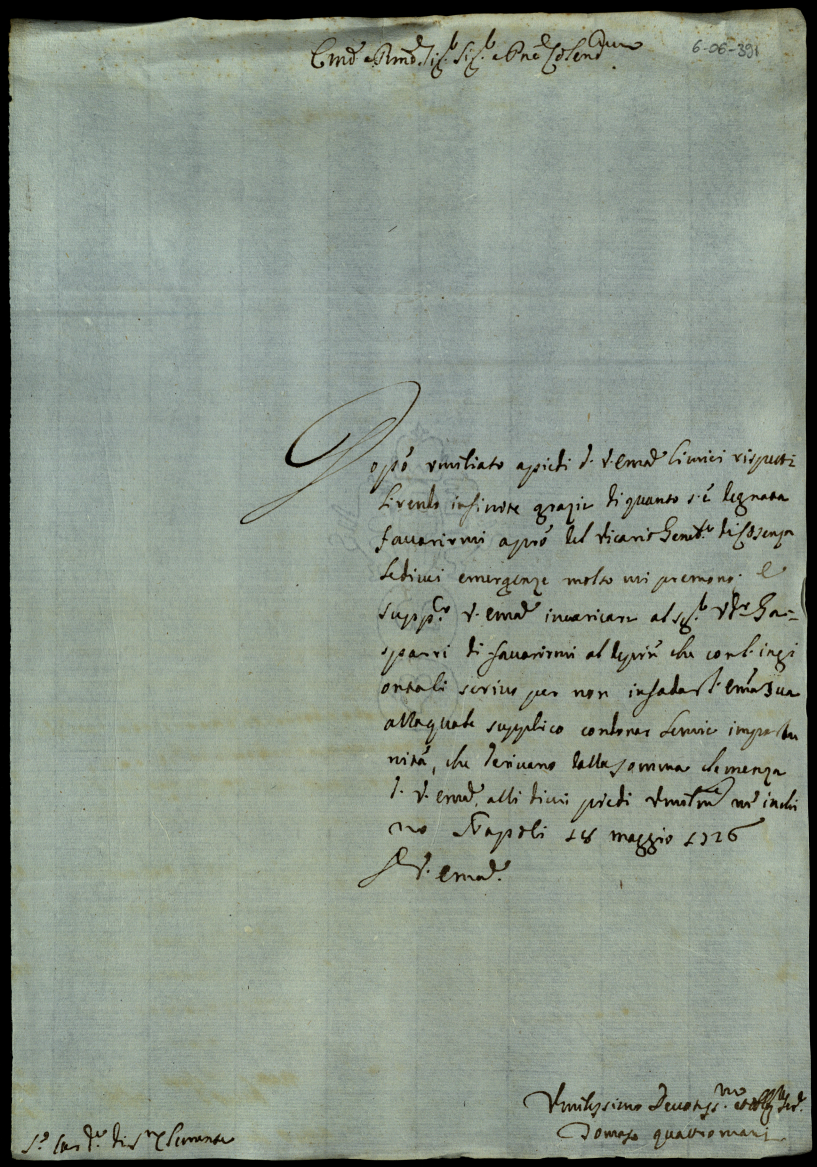 6-06-391
Em.o e Rm.o Sig.r Sig.r e Pne Colend.mo
Dopò umiliato a piedi d. V. Em.a li miei rispetti
li rendo infinite grazie di quanto s'è degnata
favorirmi apró del Vicario Gener.le di Cosenza
le di cui emergenze molto mi premono. e
supp.co V. Em.a incaricare al Sig.r D.r Ga=
sparri di favorirmi al che con l'ingi
scrivo per non infadar l'Em.a Sua
alla quale supplico condonar le mie importu
nità, che derivano dalla somma clemenza
d. V. Em.a, alli di cui piedi umilm.te m'inchi
no Napoli 18 maggio 1726
D. V. Em.a
Umilissimo Devotiss.mo et Obblig.mo Ser.
Tomaso Quattromani
S.r Car.le di S. Clemente